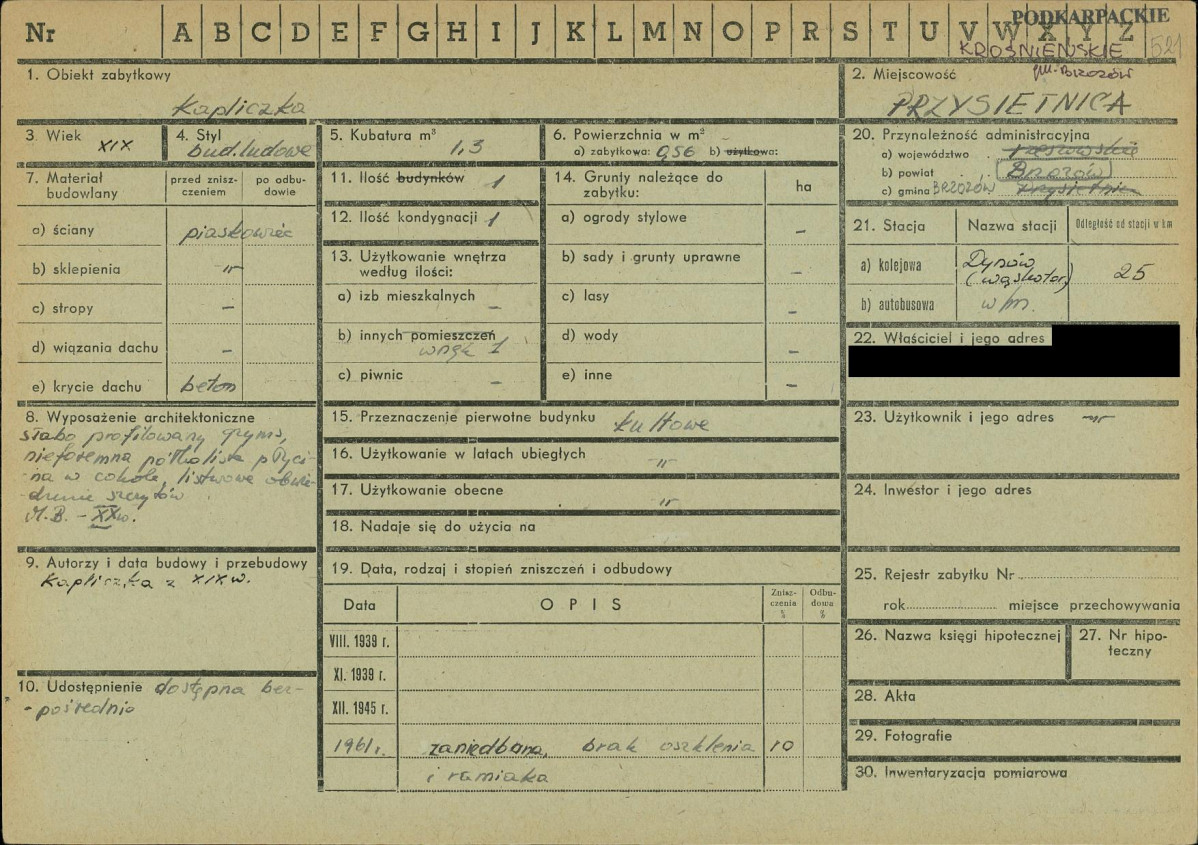 Nr A B C D E F G H I J K L M N O P R S T U V W X Y Z
PODKARPACKIE
KROŚNIEŃSKIE 521
gm. Brzozów
1. Obiekt zabytkowy
Kapliczka
2. Miejscowość
PRZYSIETNICA
3. Wiek XIX
4. Styl
bud. ludowe
5. Kubatura m³
1,3
6. Powierzchnia w m²
a) zabytkowa: 0,56 b) użytkowa:
7. Materiał budowlany
przed znisz-
czeniem
po odbu-
dowie
a) ściany piaskowiec
b) sklepienia "
c) stropy –
d) wiązania dachu –
e) krycie dachu beton
8. Wyposażenie architektoniczne
słabo profilowany gzyms,
nieforemna półkolista płyci-
-na w cokole, listwowe obwie-
-dzenie szczytów
M.B. – XX w.
9. Autorzy i data budowy i przebudowy
Kapliczka z XIX w.
10. Udostępnienie dostępna bez-
-pośrednio
11. Ilość budynków 1
12. Ilość kondygnacji 1
13. Użytkowanie wnętrza
według ilości:
a) izb mieszkalnych –
b) innych pomieszczeń
wnęk 1
c) piwnic –
14. Grunty należące do
zabytku:
ha
a) ogrody stylowe –
b) sady i grunty uprawne –
c) lasy –
d) wody –
e) inne –
15. Przeznaczenie pierwotne budynku kultowe
16. Użytkowanie w latach ubiegłych "
17. Użytkowanie obecne "
18. Nadaje się do użycia na
19. Data, rodzaj i stopień zniszczeń i odbudowy
Data OPIS
Znisz-
czenia
%
Odbu-
dowa
%
VIII. 1939 r.
XI. 1939 r.
XII. 1945 r.
1961 r. zaniedbana, brak oszklenia 10
i ramiaka
20. Przynależność administracyjna
a) województwo rzeszowskie
b) powiat Brzozów
c) gmina BRZOZÓW Przysietnica
21. Stacja Nazwa stacji Odległość od stacji w km
a) kolejowa Dynów
(wąskotor.) 25
b) autobusowa w/m.
22. Właściciel i jego adres
23. Użytkownik i jego adres "
24. Inwestor i jego adres
25. Rejestr zabytku Nr
rok miejsce przechowywania
26. Nazwa księgi hipotecznej
27. Nr hipo-
teczny
28. Akta
29. Fotografie
30. Inwentaryzacja pomiarowa